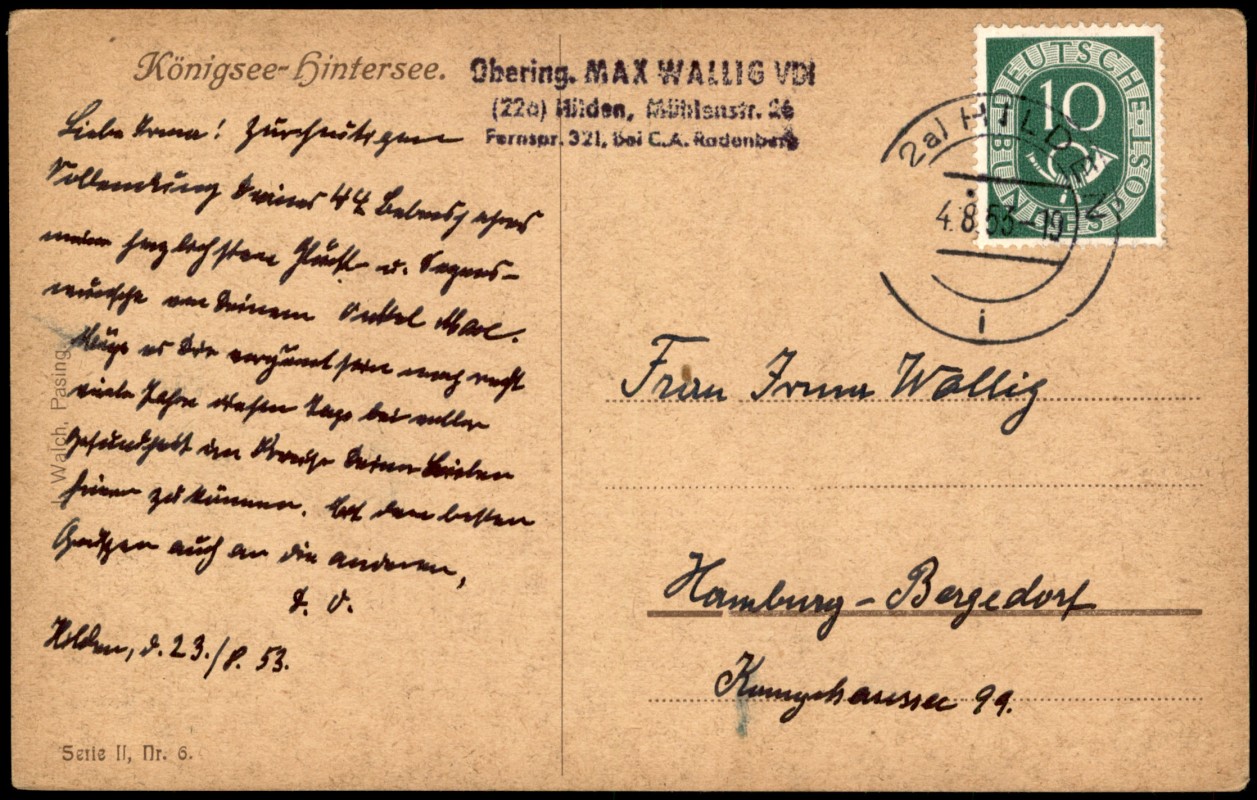 Königsee-Hintersee.
Obering. MAX WALLIG VDI
(22a) Hilden, Mühlenstr. 26
Fernspr. 321, bei C.A. Rodenberg
Liebe Irma! Zur heutigen
Vollendung Deines 44 Lebensjahres
meine herzlichsten Glück- u. Segens-
wünsche von Deinem Onkel Max.
Möge es Dir vergönnt sein noch recht
viele Jahre diesen Tage bei voller
Gesundheit im Kreise Deiner Lieben
feiern zu können. Mit den besten
Grüßen auch an die anderen,
D. O.
Hilden, d. 23./8. 53.
J. Walch, Pasing.
Serie II, Nr. 6.
DEUTSCHE BUNDESPOST
10
(22a) HILDEN
4.8.53-19
i
Frau Irma Wallig
Hamburg-Bergedorf
99.